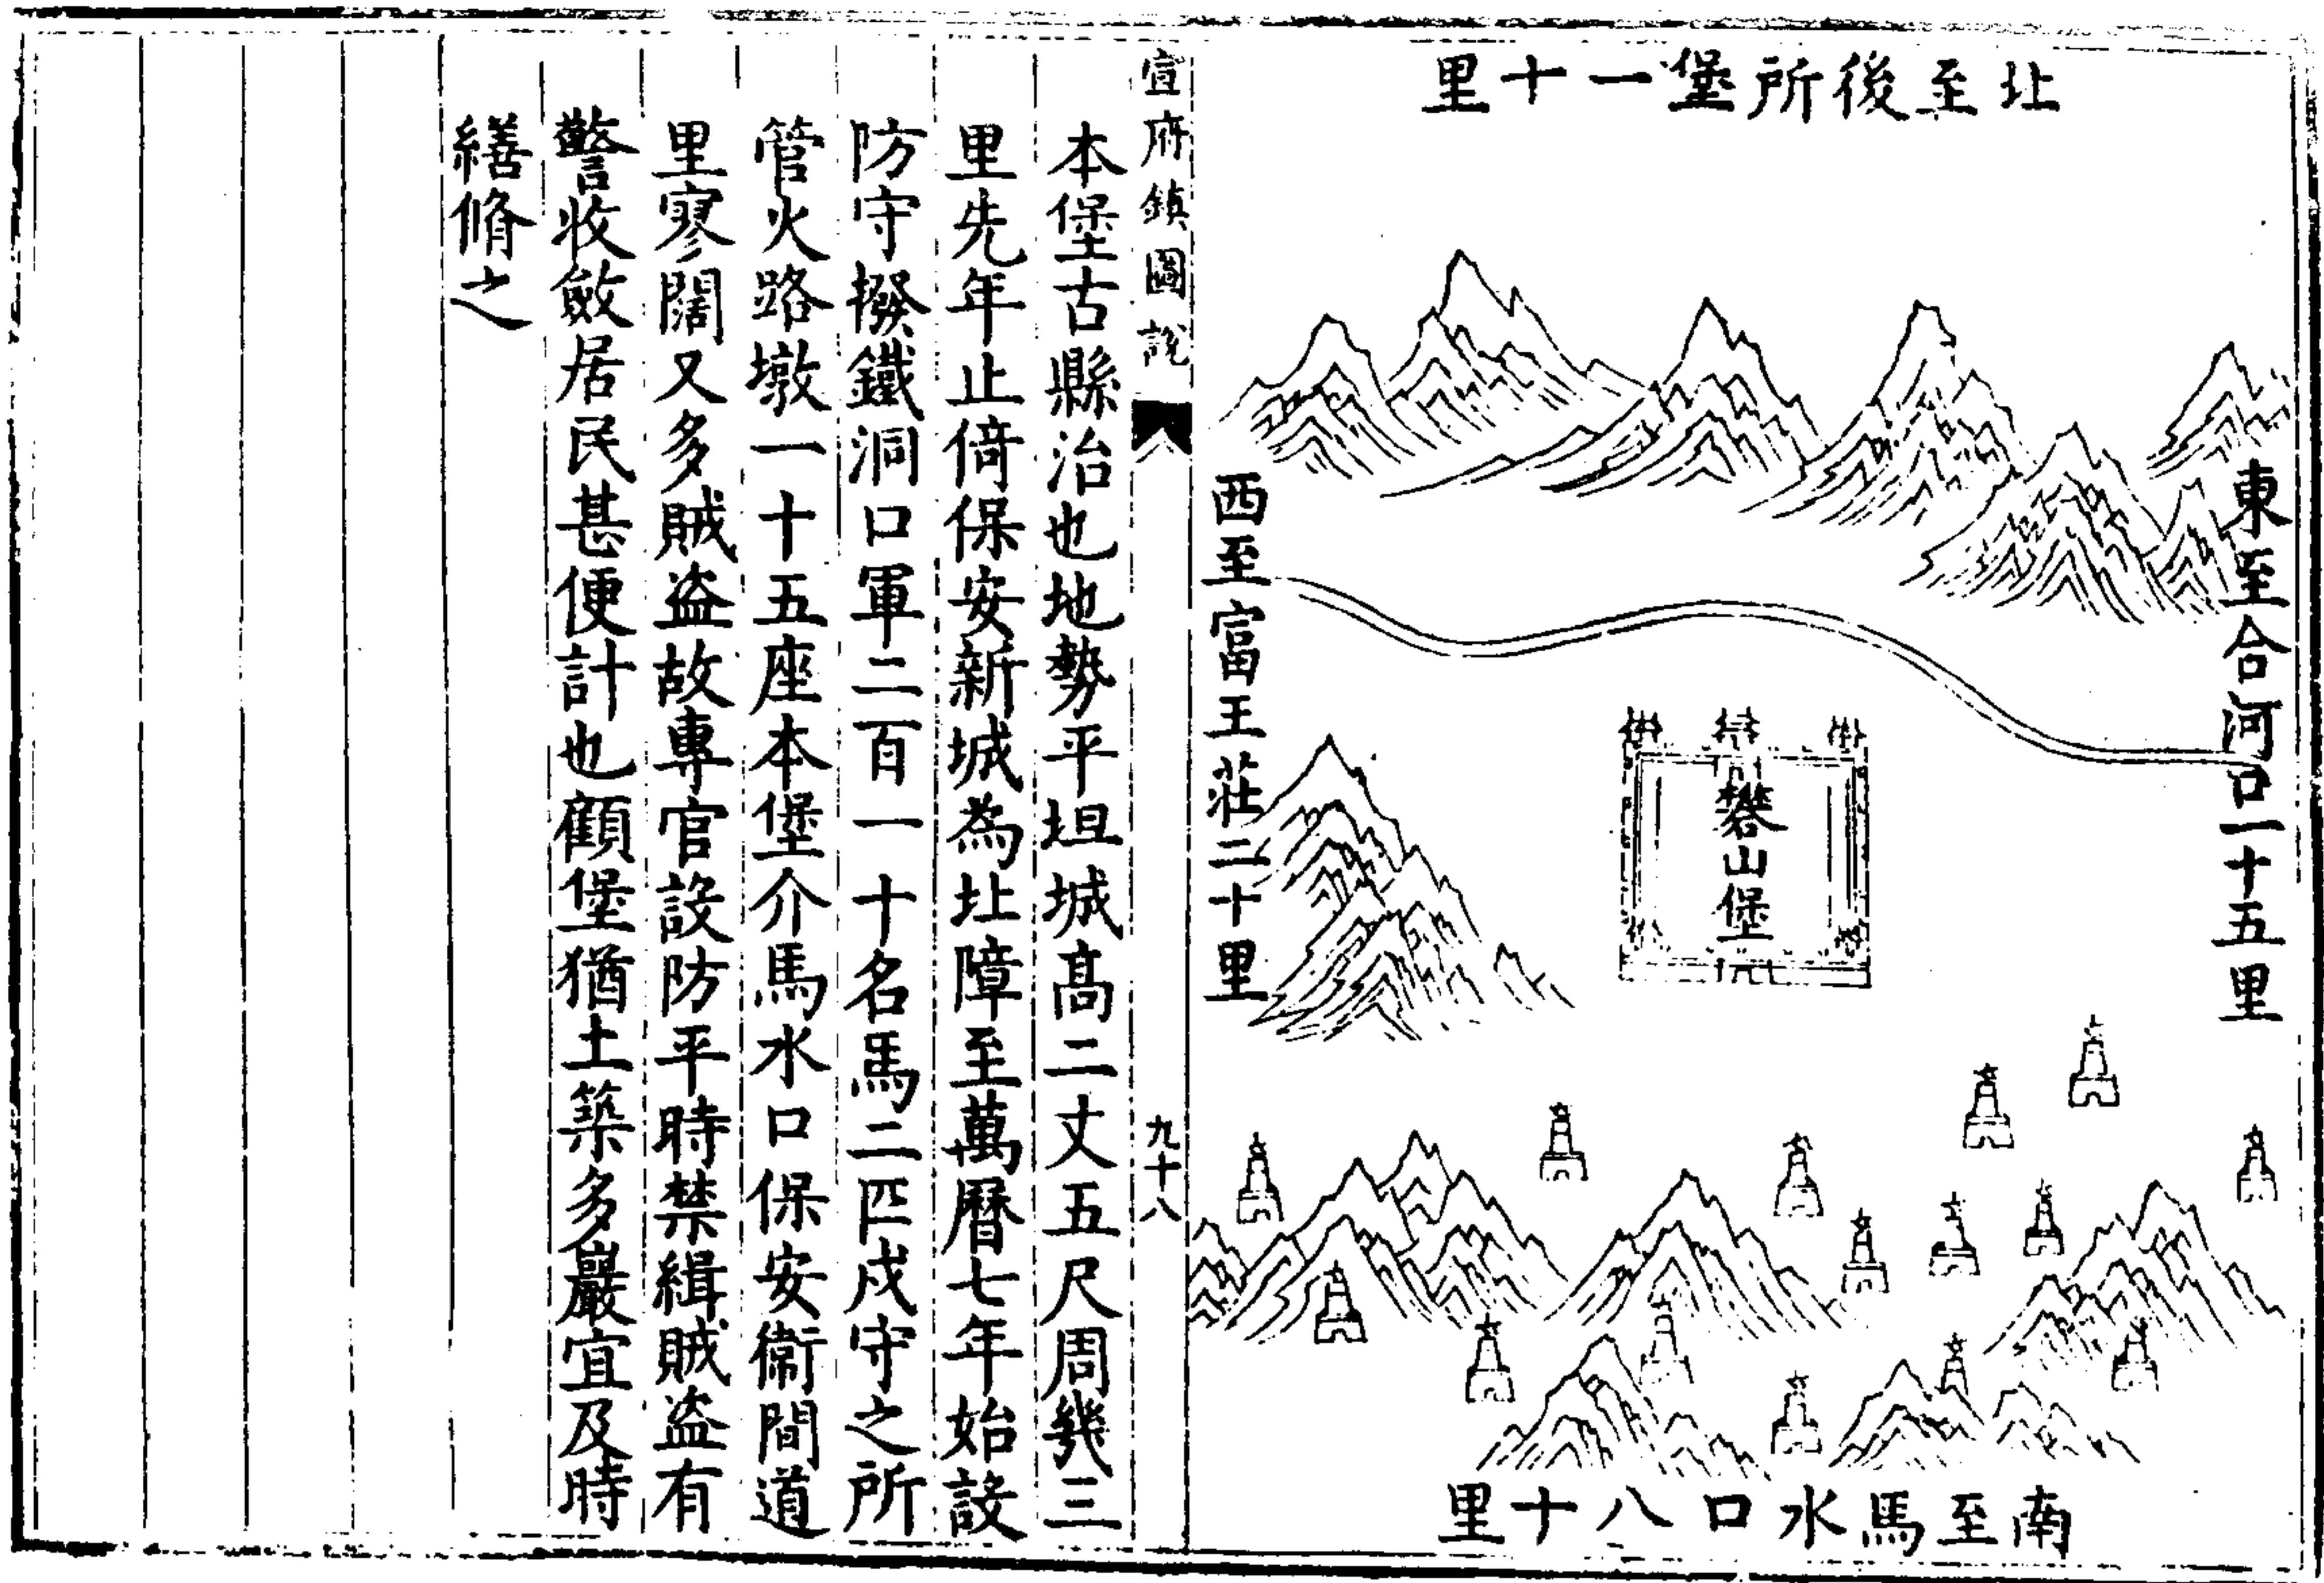 北至後所堡一十里
東至合河口一十五里
礬山堡
西至富王莊二十里
南至馬水口八十里
宣府鎮圖說
九十八
本堡古縣治也地勢平坦城高二丈五尺周幾三
里先年止倚保安新城為北障至萬曆七年始設
防守撥鐵洞口軍二百一十名馬二匹戍守之所
管火路墩一十五座本堡介馬水口保安衛間道
里寥闊又多賊盜故專官設防平時禁緝賊盜有
警收斂居民甚便計也顧堡猶土築多巖宜及時
繕脩之